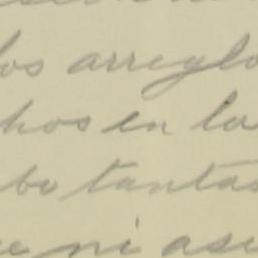 los arreglo
hos en la
bo tantas
ni ase